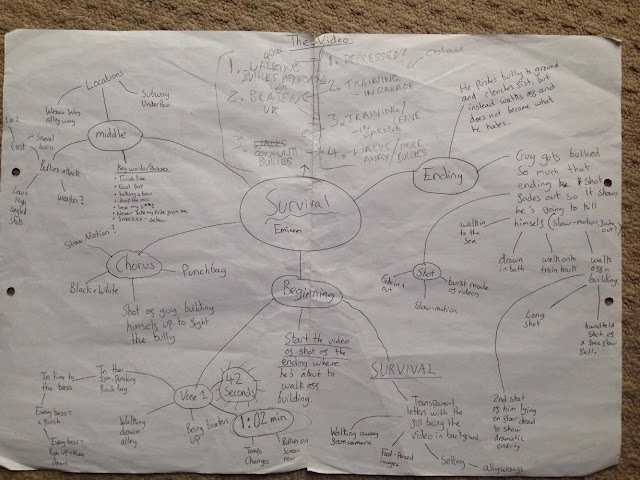 The Video
GUY
1. WALKING
BULLIES APPROACH
HIM
2. BEATEN
UP
3. STALKS
BULLIES
1. DEPRESSED?
2. TRAINING
- IN GARAGE
3. TRAINING/
LEAVE
GARAGE
4. WALKS/
AWAY/BULLIES
Survival
Eminem
middle
Locations
alley way
Subway
Under Pass
Cast
Bullies attack
Weapon?
Low +
High
angled
shots
Key words/Phrases
• Finish line
Chorus
Slow Motion?
Black + White
Punchbag
Shot of guy building
himself up to fight
the bully
Beginning
Start the video
of shot of the
ending where
he's about to
walk off
building.
Verse 1
42
Seconds
1:02 min
In the
gym, Punching
Punch bag
In time to
the bass
Every bass =
a punch
Every bass =
Push up + then
down
Walking
down
alley
Being beaten
up
Tempo
Changes
Bullies on
screen
now
SURVIVAL
Transparent
letters with the
fill being the
video in background
Walking away
from camera
Fast-Paced
images
Setting
alleyways
Ending
He pushes bully to ground
and clenches fist, but
instead walks off and
does not become what
he hates.
Guy gets bullied
so much that
ending is shot
fades out so it shows
he's going to kill
himself (slow-motion, fades out?)
walk in
to the
sea
drown
in bath
walk onto
train track
walk
off a
building
Long
shot
handheld
shot of
a free slow
fall.
2nd shot
of him lying
on floor dead
to show
dramatic
ending
Shot
Fade in +
out
Slow-motion
burst mode
of videos